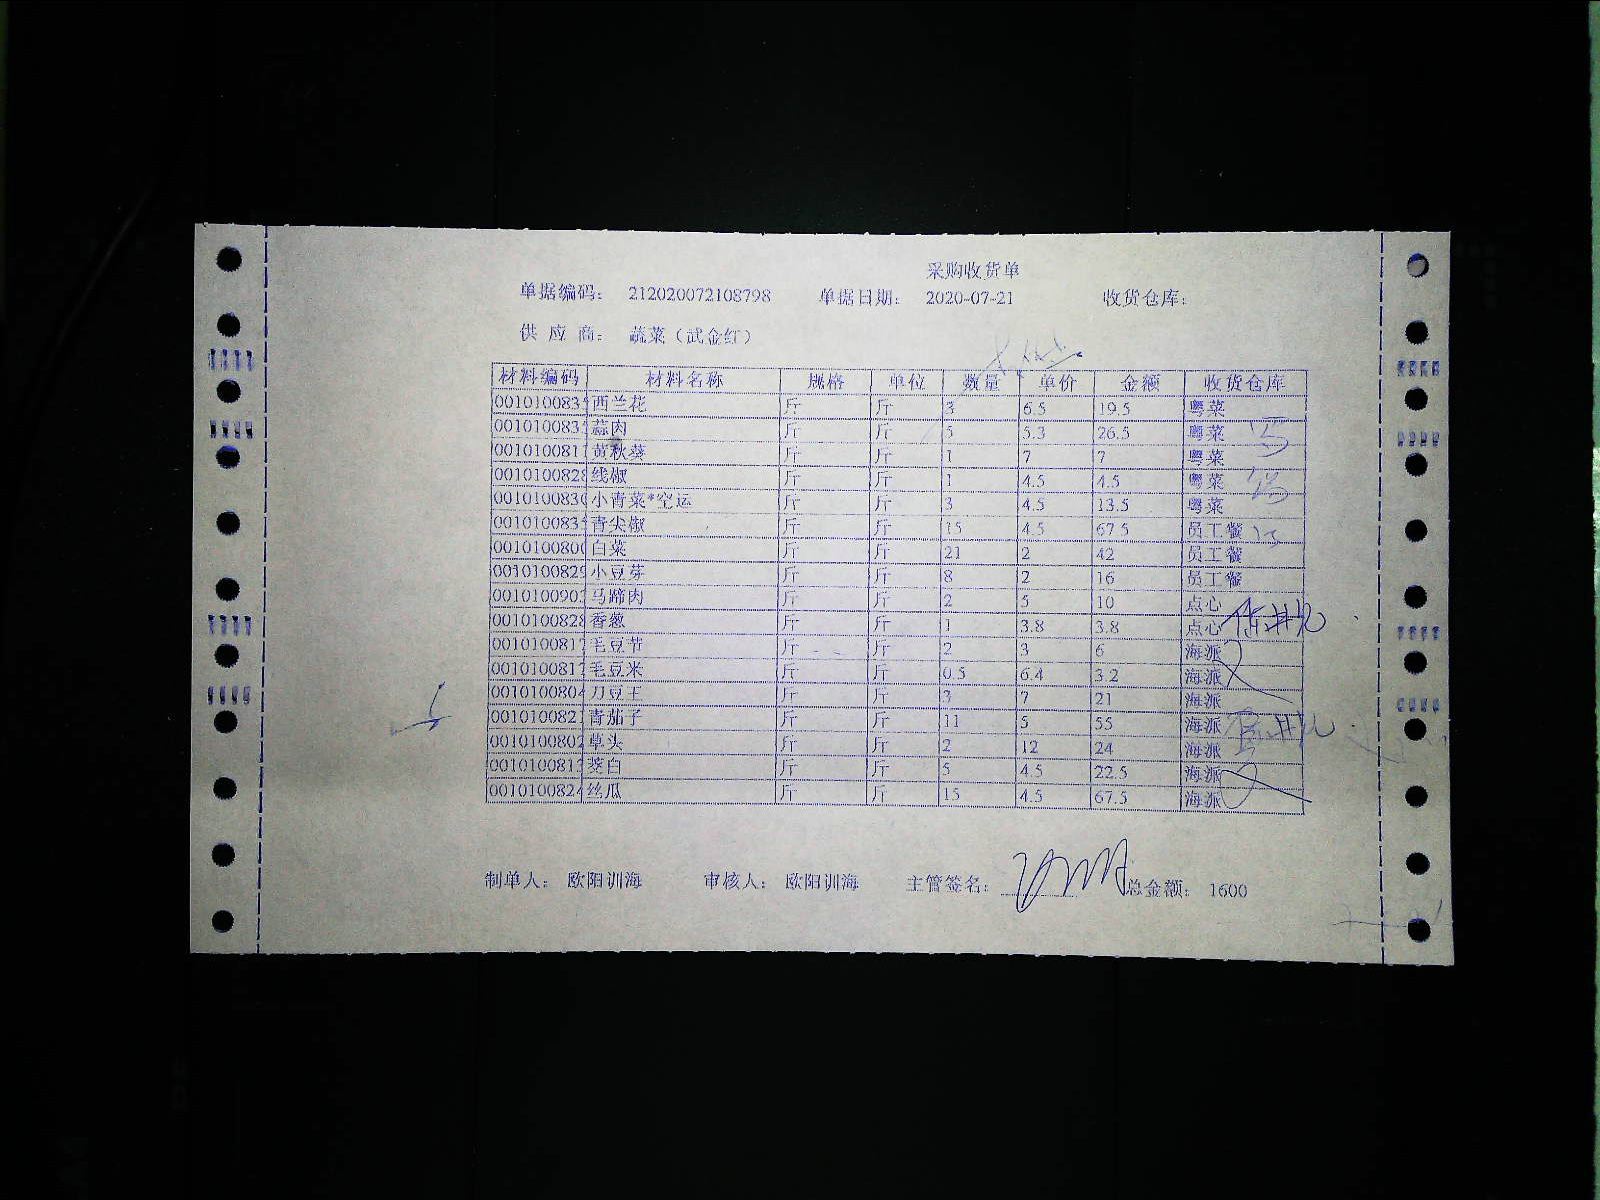 采购收货单
单据编码： 212020072108798 单据日期： 2020-07-21 收货仓库：
供 应 商： 蔬菜（武金红）
材料编码 材料名称 规格 单位 数量 单价 金额 收货仓库
001010083 西兰花 斤 斤 3 6.5 19.5 粤菜
001010083 蒜肉 斤 斤 5 5.3 26.5 粤菜
001010081 黄秋葵 斤 斤 1 7 7 粤菜
001010082 线椒 斤 斤 1 4.5 4.5 粤菜
001010083 小青菜*空运 斤 斤 3 4.5 13.5 粤菜
001010083 青尖椒 斤 斤 15 4.5 67.5 员工餐
001010080 白菜 斤 斤 21 2 42 员工餐
001010082 小豆芽 斤 斤 8 2 16 员工餐
001010090 马蹄肉 斤 斤 2 5 10 点心
001010082 香葱 斤 斤 1 3.8 3.8 点心
001010081 毛豆节 斤 斤 2 3 6 海派
001010081 毛豆米 斤 斤 0.5 6.4 3.2 海派
001010080 刀豆王 斤 斤 3 7 21 海派
001010082 青茄子 斤 斤 11 5 55 海派
001010080 草头 斤 斤 2 12 24 海派
001010081 茭白 斤 斤 5 4.5 22.5 海派
001010082 丝瓜 斤 斤 15 4.5 67.5 海派
制单人： 欧阳训海 审核人： 欧阳训海 主管签名： 总金额： 1600